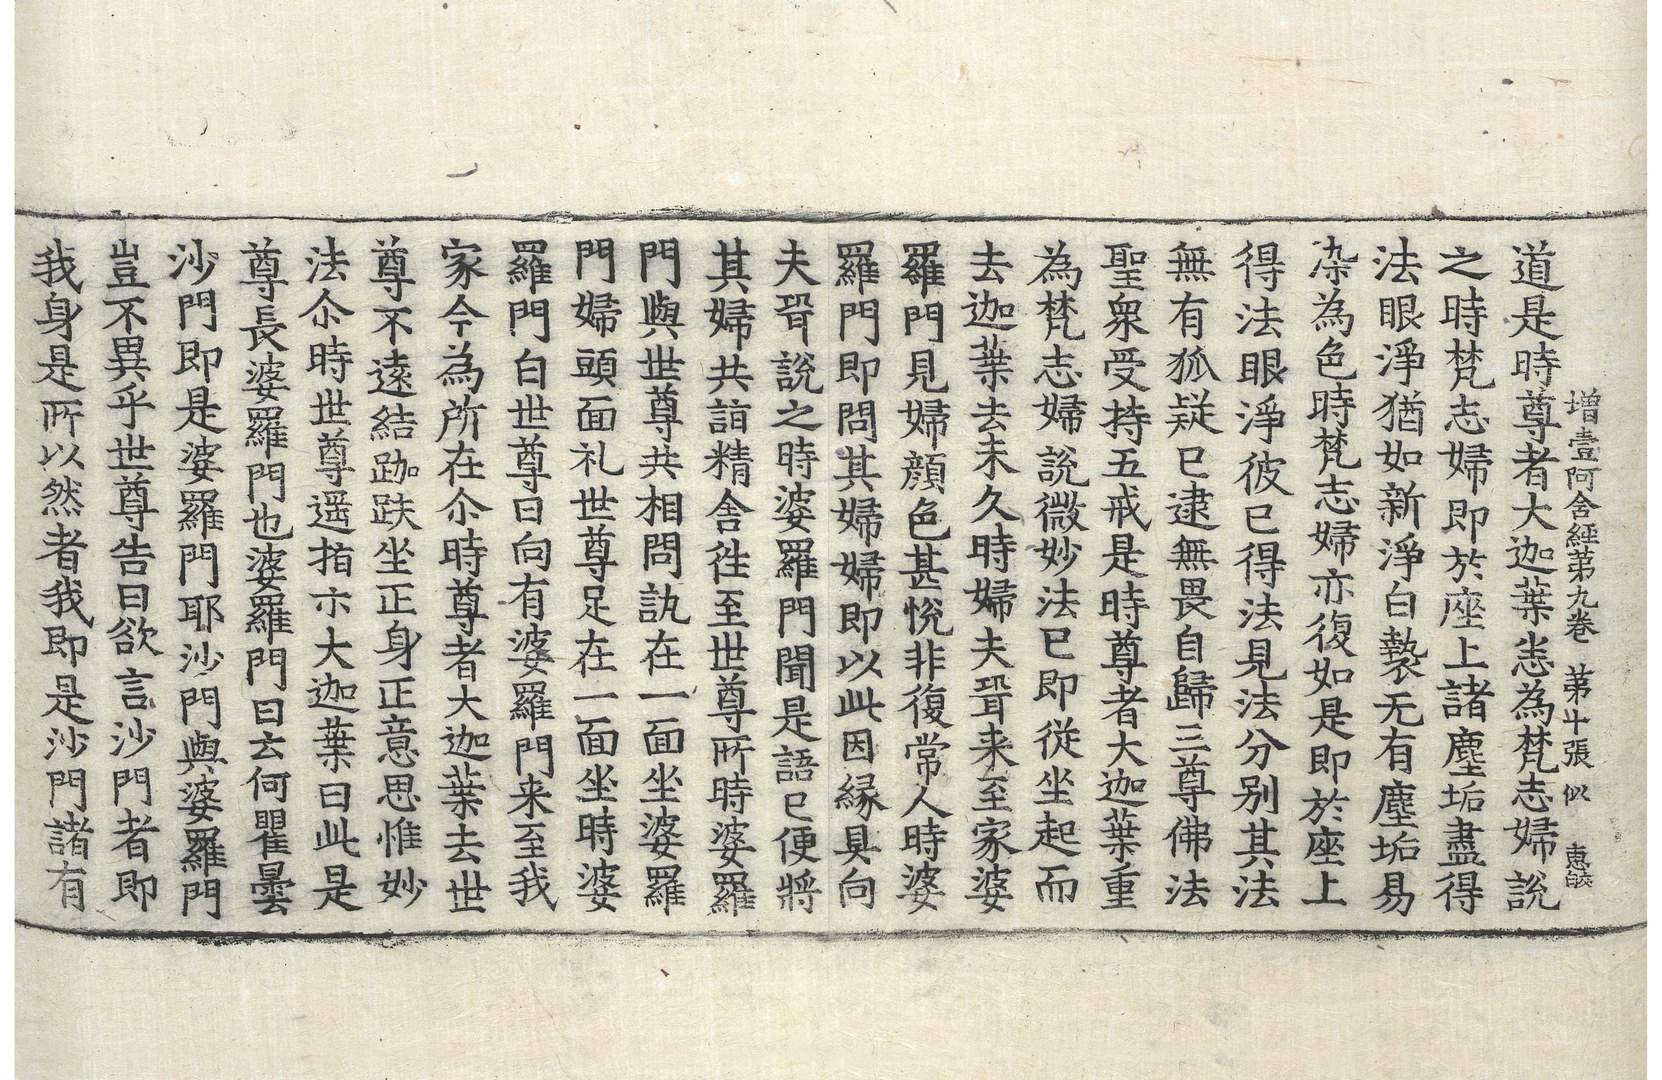 增壹阿含經第九卷　第十張　似　惠皎
道是時尊者大迦葉恙為梵志婦說
之時梵志婦即於座上諸塵垢盡得
法眼淨猶如新淨白㲲无有塵垢易
染為色時梵志婦亦復如是即於座上
得法眼淨彼已得法見法分別其法
無有狐疑已逮無畏自歸三尊佛法
聖衆受持五戒是時尊者大迦葉重
為梵志婦說微妙法已即從坐起而
去迦葉去未久時婦夫聟来至家婆
羅門見婦顔色甚恱非復常人時婆
羅門即問其婦婦即以此因緣具向
夫聟說之時婆羅門聞是語已便將
其婦共詣精舍徃至世尊所時婆羅
門與世尊共相問訊在一面坐婆羅
門婦頭面礼世尊足在一面坐時婆
羅門白世尊曰向有婆羅門来至我
家今為所在尒時尊者大迦葉去世
尊不遠結跏趺坐正身正意思惟妙
法尒時世尊遥指示大迦葉曰此是
尊長婆羅門也婆羅門曰云何瞿曇
沙門即是婆羅門耶沙門與婆羅門
豈不異乎世尊告曰欲言沙門者即
我身是所以然者我即是沙門諸有